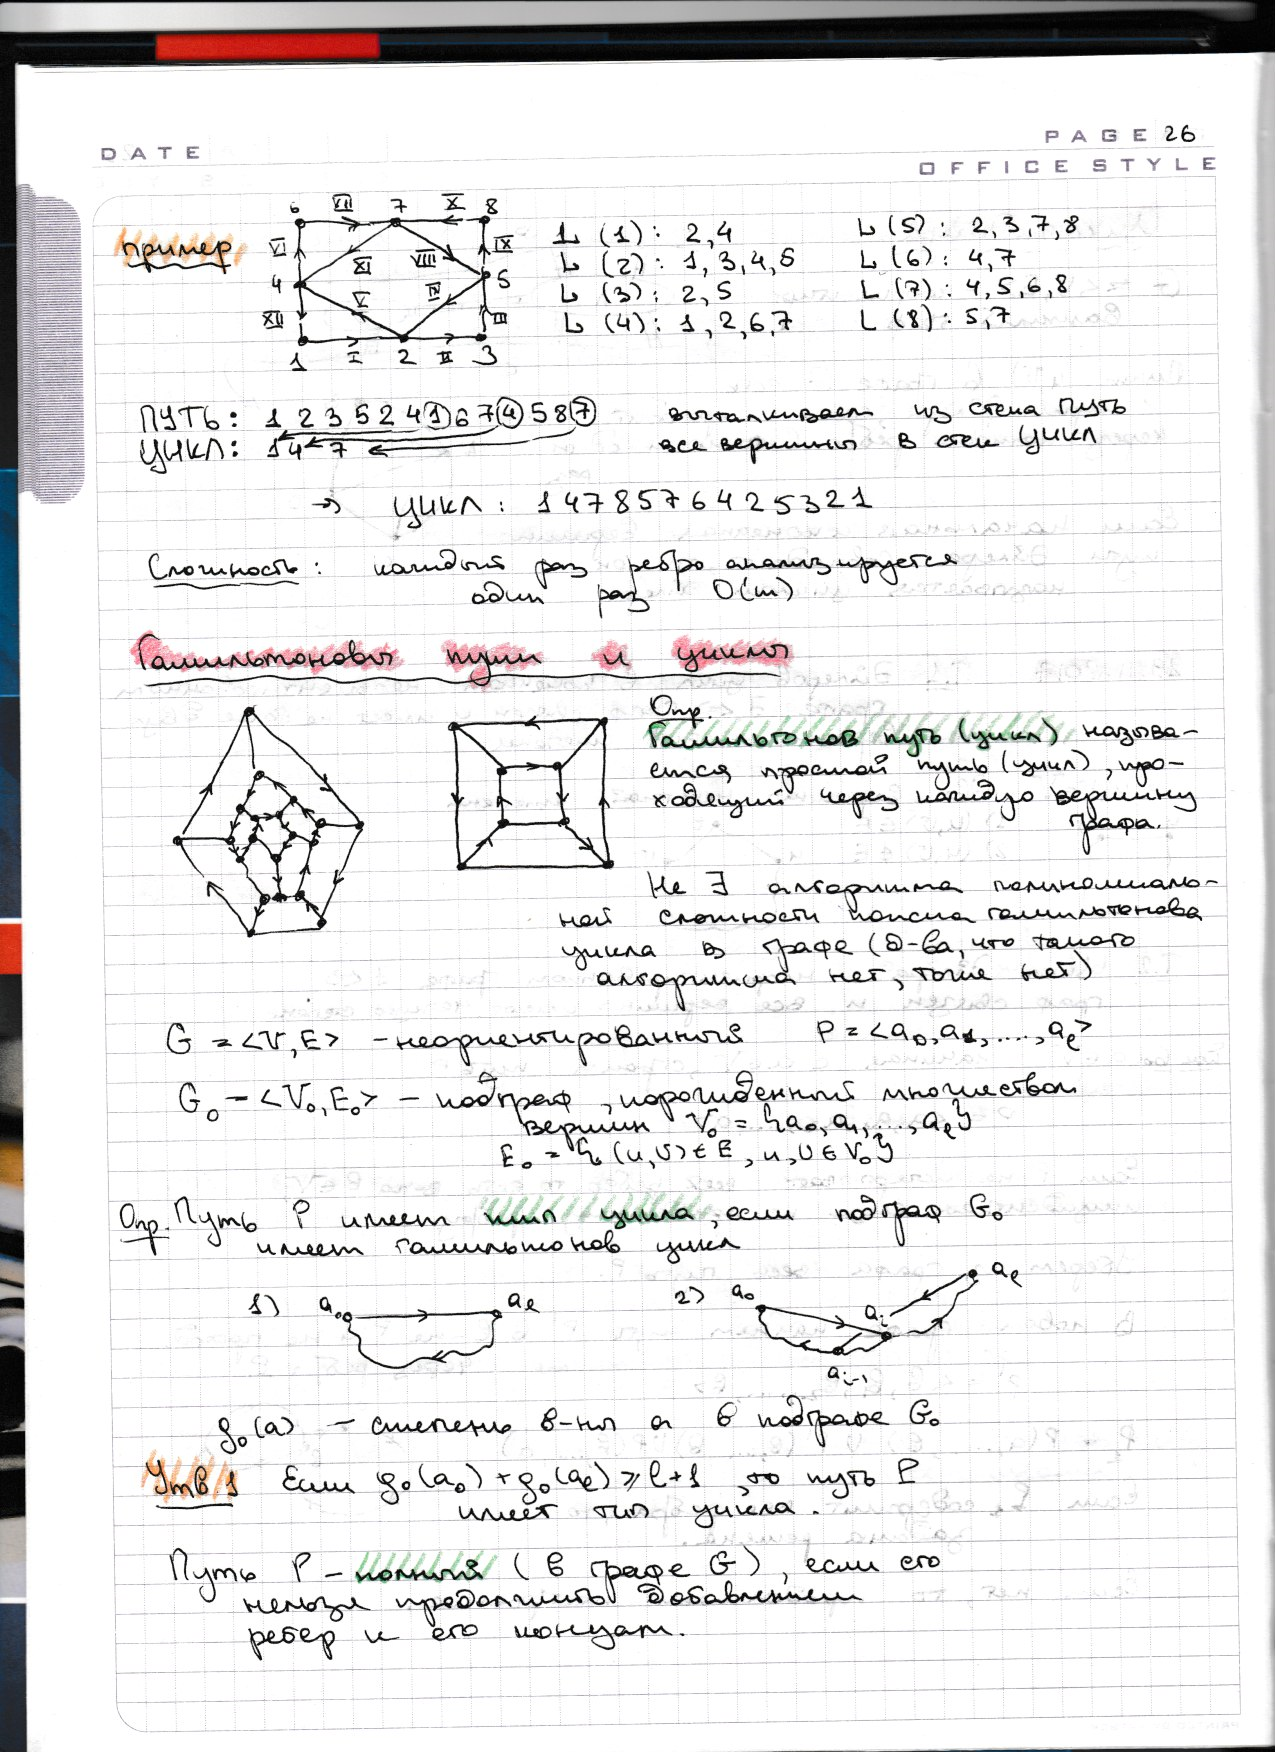 DATE
PAGE 26
OFFICE STYLE
пример
6 VII 7 X 8
VI XI VIII IX
4 5
V IV
XII III
1 I 2 II 3
L (1): 2,4
L (2): 1,3,4,5
L (3): 2,5
L (4): 1,2,6,7
L (5): 2,3,7,8
L (6): 4,7
L (7): 4,5,6,8
L (8): 5,7
ПУТЬ: 1 2 3 5 2 4 1 6 7 4 5 8 7
ЦИКЛ: 1 4 7
выталкиваем из стека ПУТЬ
все вершины в стек ЦИКЛ
→ ЦИКЛ: 1 4 7 8 5 7 6 4 2 5 3 2 1
Сложность: каждый раз ребро анализируется
один раз O(m)
Гамильтоновы пути и циклы
Опр.
Гамильтонов путь (цикл) называ-
ется простой путь (цикл), про-
ходящий через каждую вершину
графа.
Не ∃ алгоритма полиномиаль-
ной сложности поиска гамильтонова
цикла в графе (д-ва, что такого
алгоритма нет, тоже нет)
G = <V, E> - неориентированный P = <a₀, a₁, ...., aₑ>
G₀ - <V₀, E₀> - подграф, порожденный множеством
вершин V₀ = {a₀, a₁, ..., aₑ}
E₀ = {(u,v) ∈ E, u, v ∈ V₀}
Опр. Путь P имеет тип цикла, если подграф G₀
имеет гамильтонов цикл
1) a₀ aₑ
2) a₀ aᵢ aₑ
aᵢ₋₁
g₀(a) - степень в-ны a в подграфе G₀
Утв 1 Если g₀(a₀) + g₀(aₑ) ⩾ l+1, то путь P
имеет тип цикла.
Путь P - полный (в графе G), если его
нельзя продолжить добавлением
ребер к его концам.